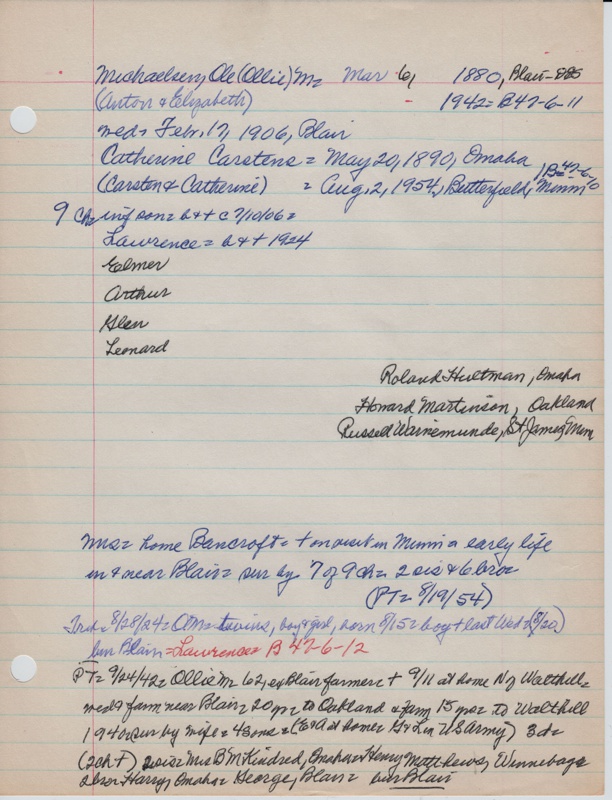 Michaelsen, Ole (Ollie) M= Mar 6, 1880, Blair-
(Anton & Elizabeth) 1942= B47-6-11
wed= Feb. 17, 1906, Blair
Catherine Carstens = May 20, 1890, Omaha
(Carsten & Catherine) = Aug. 2, 1954, Butterfield, Minn B=47-6-10
9 Ch= inf son= b & + c 7/10/06=
Lawrence = b & + 1924
Elmer
Arthur
Glen
Leonard
Roland Hultman, Omaha
Howard Martinson, Oakland
Russell Warnemunde, St James, Minn
Mrs= home Bancroft= + on visit in Minn= early life
in & near Blair= sur by 7 of 9 ch= 2 sis & 6 bro=
(PT= 8/19/54)
Trib= 8/28/24= OM= twins, boy & girl, born 8/15= boy + last Wed= (8/20)
bur Blair =Lawrence= B 47-6-12
PT= 9/24/42= Ollie M= 62, ex Blair farmer= + 9/11 at home N of Walthill=
wed & farm near Blair= 20 yr= to Oakland & farm 15 yrs= to Walthill
1940= sur by wife= 4 sons= (E & A at home= G & L in US Army) 3 d=
(2 ch +) 2 sis= Mrs B M Kindred, Omaha= Henry Matthews, Winnebago
2 bro= Harry, Omaha= George, Blair= bur Blair